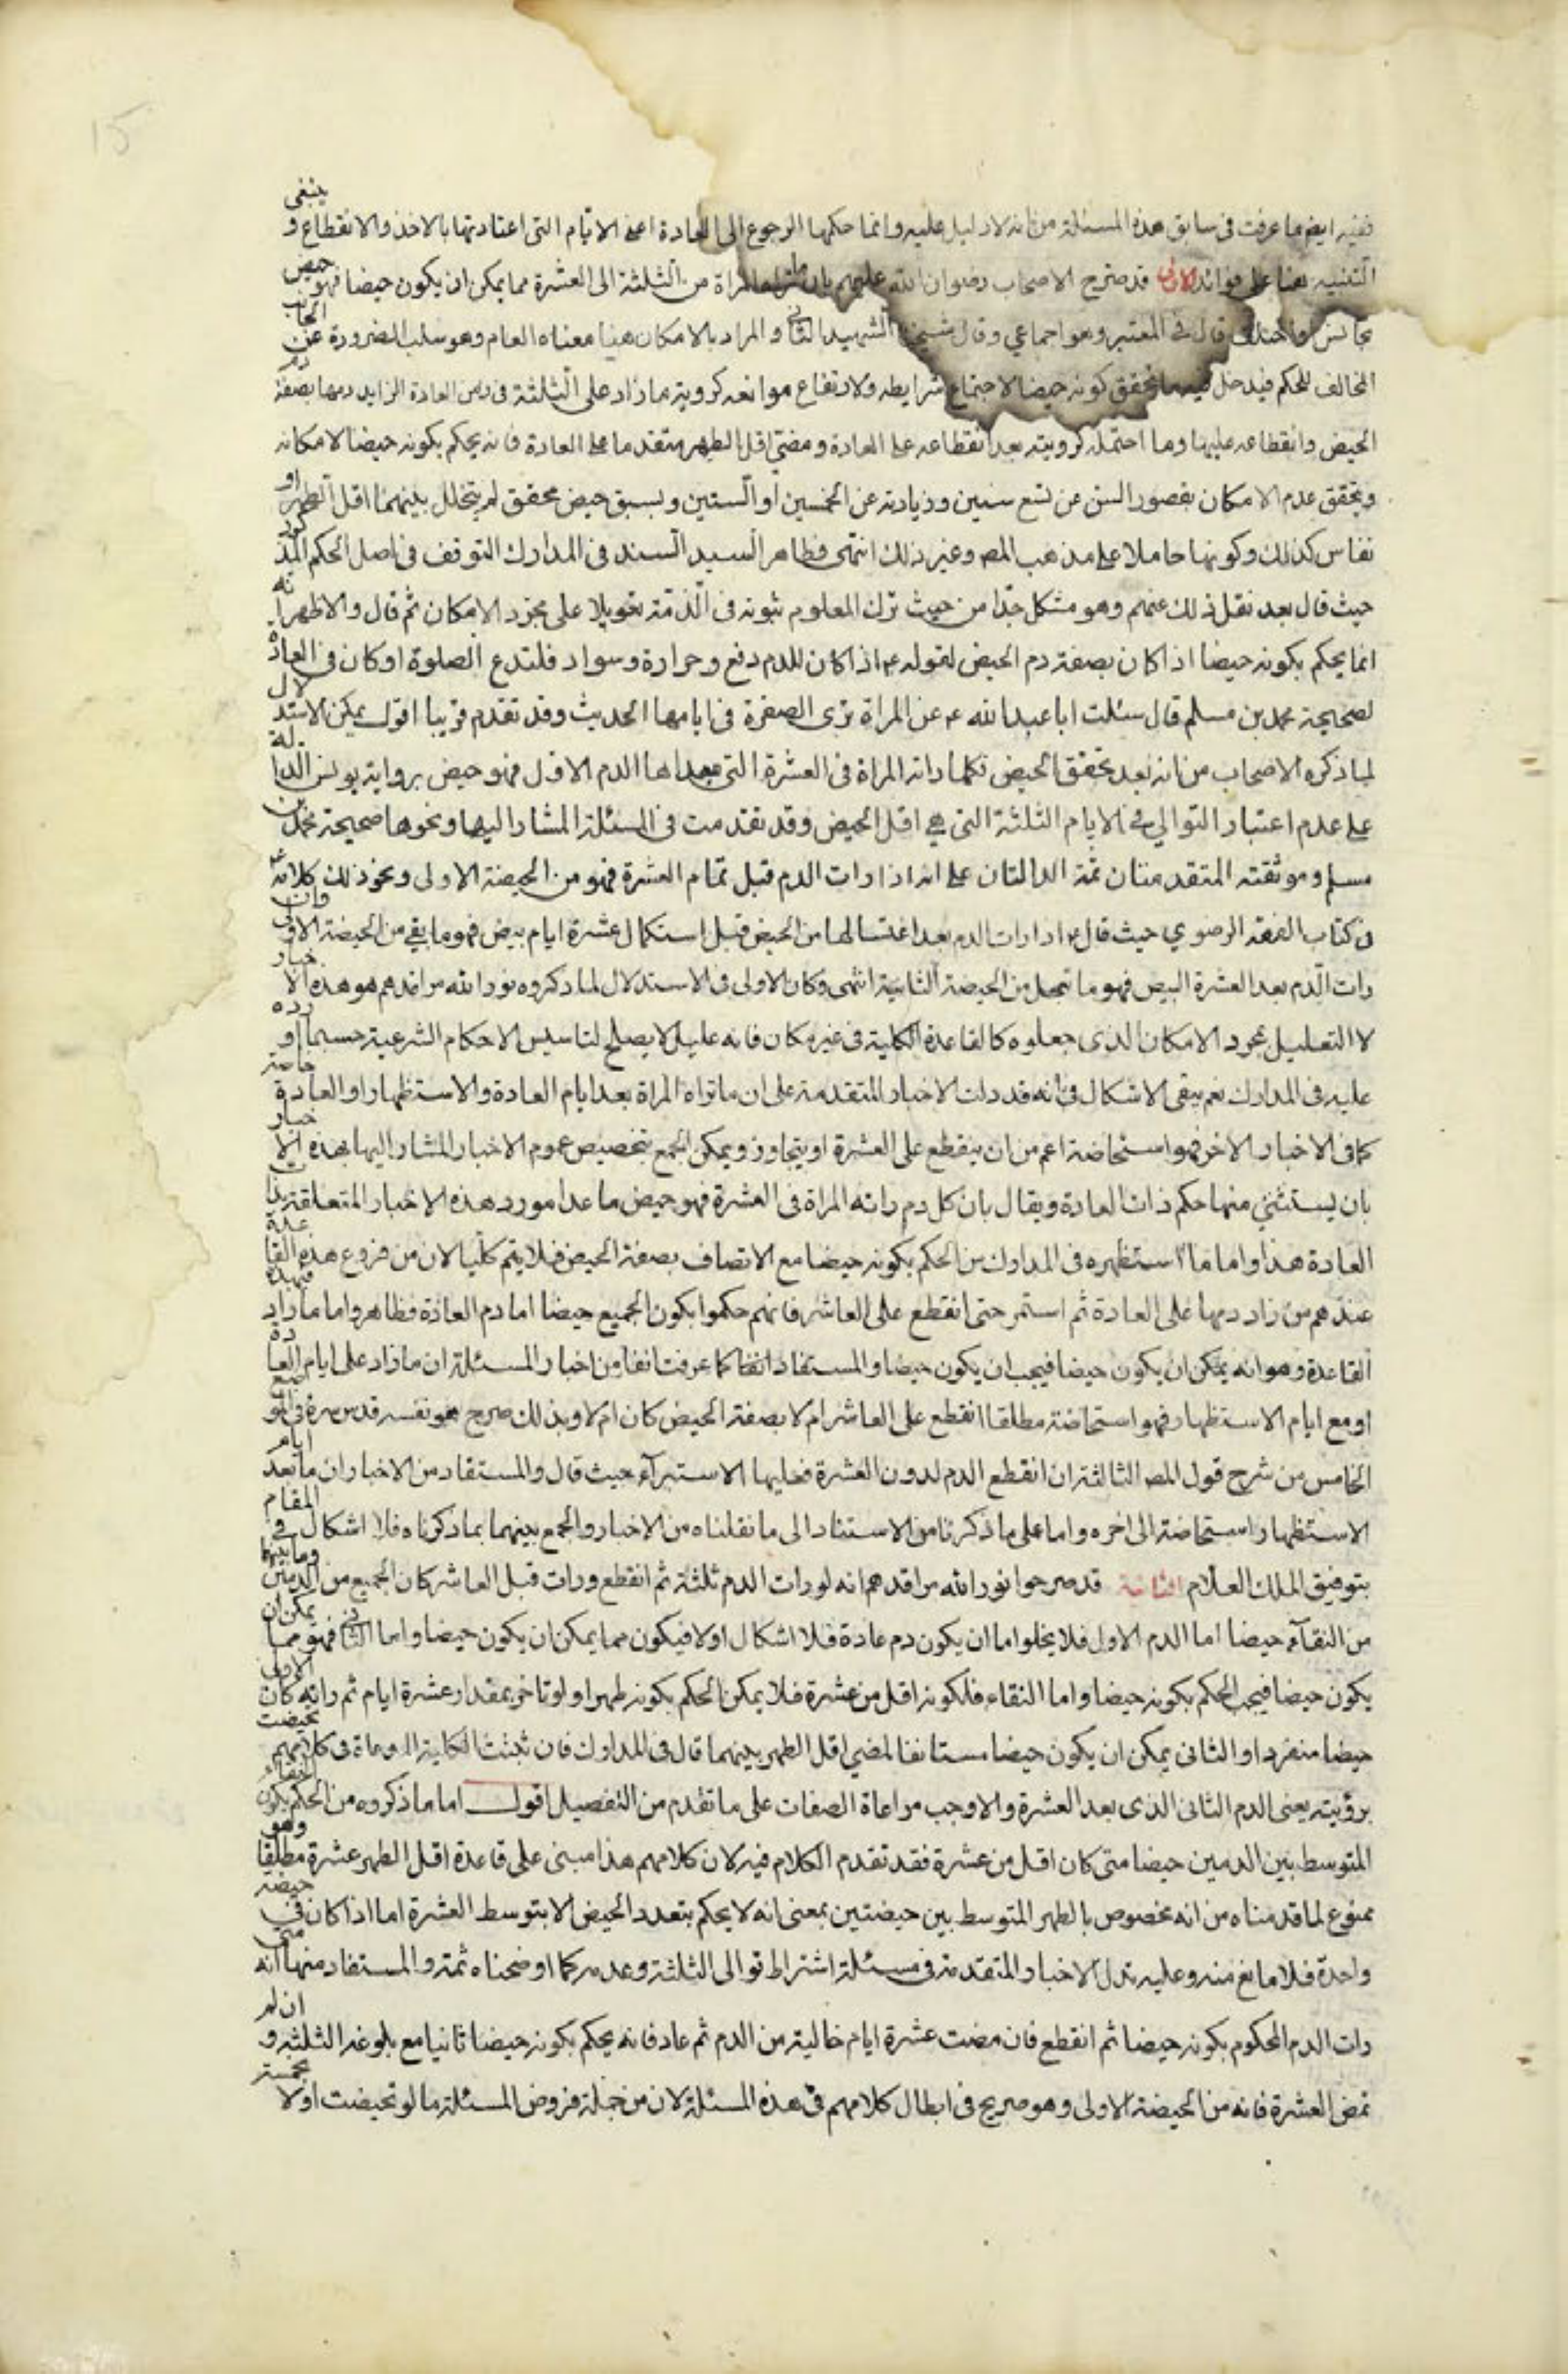 ففيه ايضا ما عرفت فى سابق هذه المسئلة من انه لا دليل عليه وانما حكمها الرجوع الى العادة اعنى الايام التى اعتادتها بالاخذ والانقطاع و ينبغى
التنبيه هنا على فوائد الاولى قد صرح الاصحاب رضوان الله عليهم بان ما تراه المراة من الثلثة الى العشرة مما يمكن ان يكون حيضا فهو حيض
تجانس او اختلف قال فى المعتبر وهو اجماعي وقال شيخنا الشهيد الثانى والمراد بالامكان هنا معناه العام وهو سلب الضرورة عن الجانب
المخالف للحكم فيدخل فيه ما تحقق كونه حيضا لاجتماع شرايطه ولارتفاع موانعه كروية ما زاد على الثلثة فى زمن العادة الزايد دمها بصفة دم
الحيض وانقطاعه عليها وما احتمله كرويته بعد انقطاعه على العادة ومضى اقل الطهر متقدما على العادة فانه يحكم بكونه حيضا لامكانه
ويتحقق عدم الامكان بقصور السن عن تسع سنين وزيادته عن الخمسين او الستين وبسبق حيض محقق لم يتخلل بينهما اقل الطهر او
نفاس كذلك وكونها حاملا على مذهب المصـ وغير ذلك انتهى وظاهر السيد السند فى المدارك التوقف فى اصل الحكم المذكور
حيث قال بعد نقل ذلك عنهم وهو مشكل جدا من حيث ترك المعلوم ثبوته فى الذمة تعويلا على مجرد الامكان ثم قال والاظهر انه
انما يحكم بكونه حيضا اذا كان بصفة دم الحيض لقوله ع اذا كان للدم دفع وحرارة وسواد فلتدع الصلوة او كان فى العادة
لصحيحة محمد بن مسلم قال سئلت ابا عبد الله ع عن المراة ترى الصفرة فى ايامها الحديث وقد تقدم قريبا اقول يمكن الاستدلال
لما ذكره الاصحاب من انه بعد تحقق الحيض فكلما راته المراة فى العشرة التى مبداها الدم الاول فهو حيض برواية يونس الدالة
على عدم اعتبار التوالي فى الايام الثلثة التى هي اقل الحيض وقد تقدمت فى المسئلة المشار اليها ونحوها صحيحة محمد بن
مسلم وموثقته المتقدمتان ثمة الدالتان على انه اذا رات الدم قبل تمام العشرة فهو من الحيضة الاولى ونحو ذلك كلامه ع
فى كتاب الفقه الرضوي حيث قال ع اذا رات الدم بعد اغتسالها من الحيض قبل استكمال عشرة ايام بيض فهو ما بقي من الحيضة الاولى وان
رات الدم بعد العشرة البيض فهو ما تعجل من الحيضة الثانية انتهى وكان الاولى فى الاستدلال لما ذكروه نور الله مراقدهم هو هذه الاخبار
لا التعليل بمجرد الامكان الذى جعلوه كالقاعدة الكلية فى غير مكان فانه عليل لا يصلح لتاسيس الاحكام الشرعية حسبما اورده
عليه فى المدارك نعم يبقى الاشكال فى انه قد دلت الاخبار المتقدمة على ان ما تراه المراة بعد ايام العادة والاستظهار او العادة خاصة
كما فى الاخبار الاخر فهو استحاضة اعم من ان ينقطع على العشرة او يتجاوز ويمكن الجمع بتخصيص عموم الاخبار المشار اليها بهذه الاخبار
بان يستثنى منها حكم ذات العادة ويقال بان كل دم راته المراة فى العشرة فهو حيض ما عدا مورد هذه الاخبار المتعلقة بذات
العادة هذا واما ما استظهره فى المدارك من الحكم بكونه حيضا مع الاتصاف بصفة الحيض فلا يتم كليا لان من فروع هذه القاعدة
عندهم من زاد دمها على العادة ثم استمر حتى انقطع على العاشر فانهم حكموا بكون الجميع حيضا اما دم العادة فظاهر واما ما زاد فبهذه
القاعدة وهو انه يمكن ان يكون حيضا فيجب ان يكون حيضا والمستفاد انفا كما عرفت انفا من اخبار المسئلة ان ما زاد على ايام العادة
او مع ايام الاستظهار فهو استحاضة مطلقا انقطع على العاشر ام لا بصفة الحيض كان ام لا وبذلك صرح هو نفسه قدس سره فى الموضع
الخامس من شرح قول المصـ الثالثة ان انقطع الدم لدون العشرة فعليها الاستبراء حيث قال والمستفاد من الاخبار ان ما بعد ايام
الاستظهار استحاضة الى اخره واما على ما ذكرنا من الاستناد الى ما نقلناه من الاخبار والجمع بينهما بما ذكرناه فلا اشكال فى المقام
بتوفيق الملك العلام الثانية قد صرحوا نور الله مراقدهم انه لو رات الدم ثلثة ثم انقطع ورات قبل العاشر كان الجميع من الدمين وما بينهما
من النقاء حيضا اما الدم الاول فلا يخلو اما ان يكون دم عادة فلا اشكال او لا فيكون مما يمكن ان يكون حيضا واما الثانى فهو مما يمكن ان
يكون حيضا فيجب الحكم بكونه حيضا واما النقاء فلكونه اقل من عشرة فلا يمكن الحكم بكونه طهرا ولو تاخر بمقدار عشرة ايام ثم راته كان الاول
حيضا منفردا والثانى يمكن ان يكون حيضا مستانفا لمضي اقل الطهر بينهما قال فى المدارك فان ثبتت الكلية المدعاة فى كلامهم تحيضت
برؤيته يعنى الدم الثانى الذى بعد العشرة والا وجب مراعاة الصفات على ما تقدم من التفصيل اقول اما ما ذكروه من الحكم بكون النقاء
المتوسط بين الدمين حيضا متى كان اقل من عشرة فقد تقدم الكلام فيه لان كلامهم هذا مبنى على قاعدة اقل الطهر عشرة مطلقا وهو
ممنوع لما قدمناه من انه مخصوص بالطهر المتوسط بين حيضتين بمعنى انه لا يحكم بتعدد الحيض الا بتوسط العشرة اما اذا كان في حيضة
واحدة فلا مانع منه وعليه تدل الاخبار المتقدمة فى مسئلة اشتراط توالى الثلثة وعدمه كما اوضحناه ثمة والمستفاد منها انه متى
رات الدم المحكوم بكونه حيضا ثم انقطع فان مضت عشرة ايام خالية من الدم ثم عاد فانه يحكم بكونه حيضا ثانيا مع بلوغه الثلثة و ان لم
تمض العشرة فانه من الحيضة الاولى وهو صريح فى ابطال كلامهم فى هذه المسئلة لان من جملة فروض المسئلة ما لو تحيضت اولا بخمسة
15